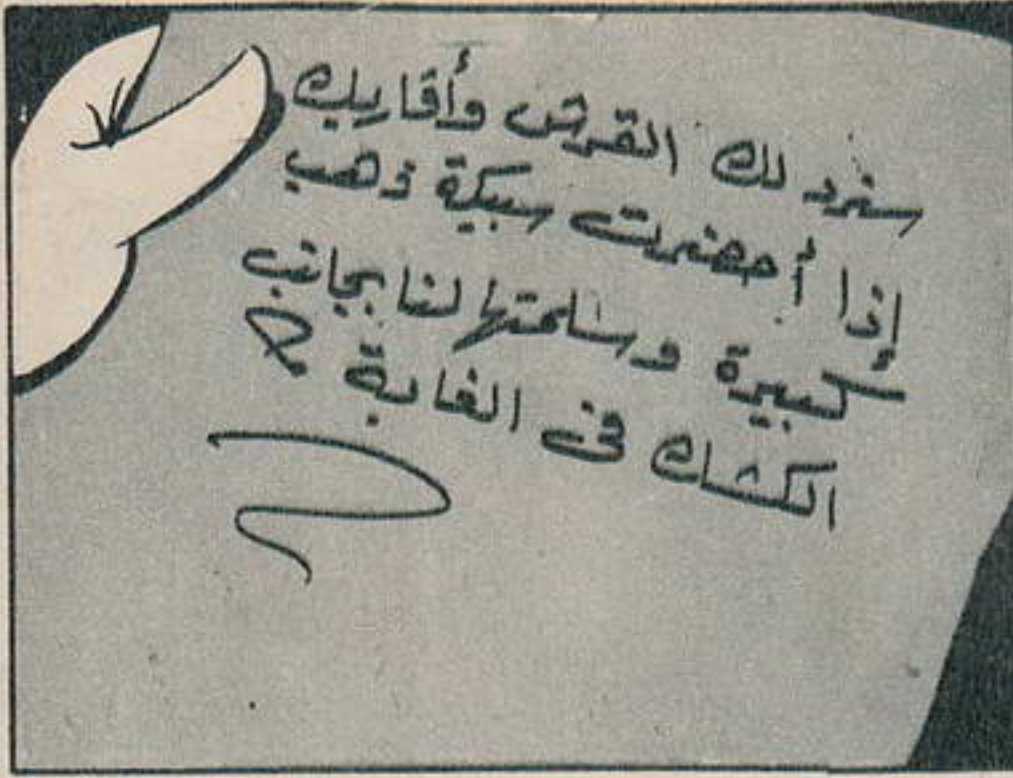 سنرد لك القرش وأقاربك
إذا أحضرت سبيكة ذهب
كبيرة وسلمتها لنا بجانب
الكشك فى الغابة